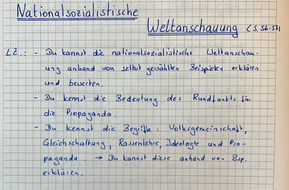 Nationalsozialistische
Weltanschauung (S. 56-57)
LZ.: - Du kannst die nationalsozialistische Weltanschau-
ung anhand von selbst gewählten Beispielen erklären
und bewerten.
- Du kennst die Bedeutung des Rundfunks für
die Propaganda.
- Du kennst die Begriffe: Volksgemeinschaft,
Gleichschaltung, Rassenlehre, Ideologie und Pro-
paganda. → Du kannst diese anhand von Bsp.
erklären.